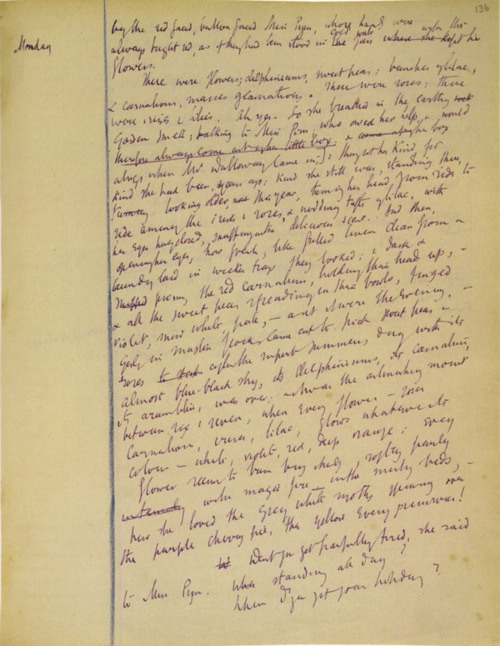 136
Monday
by the red faced, button faced Miss Pym, whose hands were
always bright red, as if they had been stood in cold water with the
flowers.
There were flowers; delphiniums, sweet peas; bunches of lilac,
& carnations, masses of carnations. There were roses; there
were irises & lilies. Ah yes. So she breathed in the earthy
garden smell, talking to Miss Pym, who owed her help, & would
therefore always come out of her little box
always, when Mrs Dalloway came in; & thought her kind, for
kind she had been, years ago; kind she still was, standing there,
looking older, this year, turning her head from side to
side among the irises & roses, & nodding tufts of lilac, with
her eyes half closed, snuffing in the delicious scent. And then,
opening her eyes, how fresh, like frilled linen clean from a
laundry laid in wicker trays they looked; & dark &
the red carnations, holding their heads up, -
& all the sweet peas spreading in their bowls, tinged
violet, snow white, pale, - as if it were the evening, -
girls in muslin frocks came out to pick sweet peas, &
roses after the superb summers day with its
almost blue-black sky, its delphiniums, its carnations,
its arum lilies, was over; & it was the moment
between six & seven, when every flower - roses
carnations, irises, lilac, glows whatever its
colour - white, violet, red, deep orange; every
flower seems to burn by itself, softly, purely
in the misty beds, -
how she loved the grey white moths spinning over
the purple cherry pie, the yellow evening primroses!
Dont you get fearfully tired, she said
to Miss Pym. standing all day?
When d'you get your holiday?